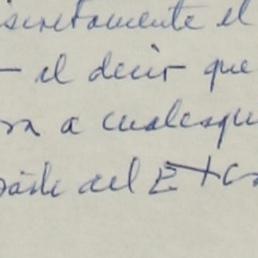 iscretamente el
– el decir que
a cualesqu
del